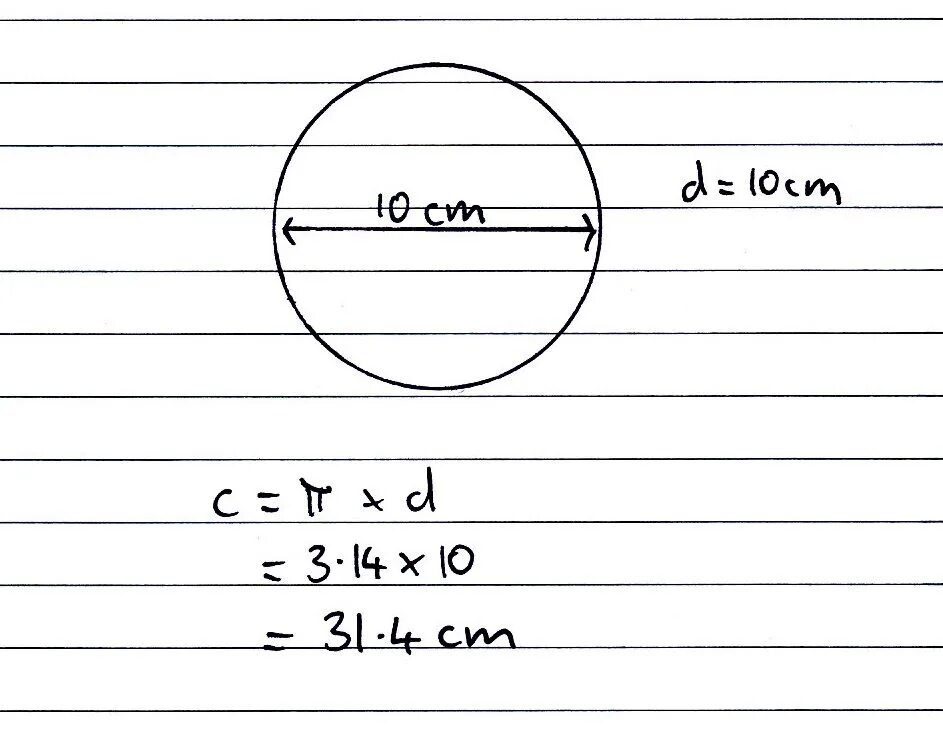 10 cm
d = 10cm
c = π × d
= 3·14 × 10
= 31·4 cm